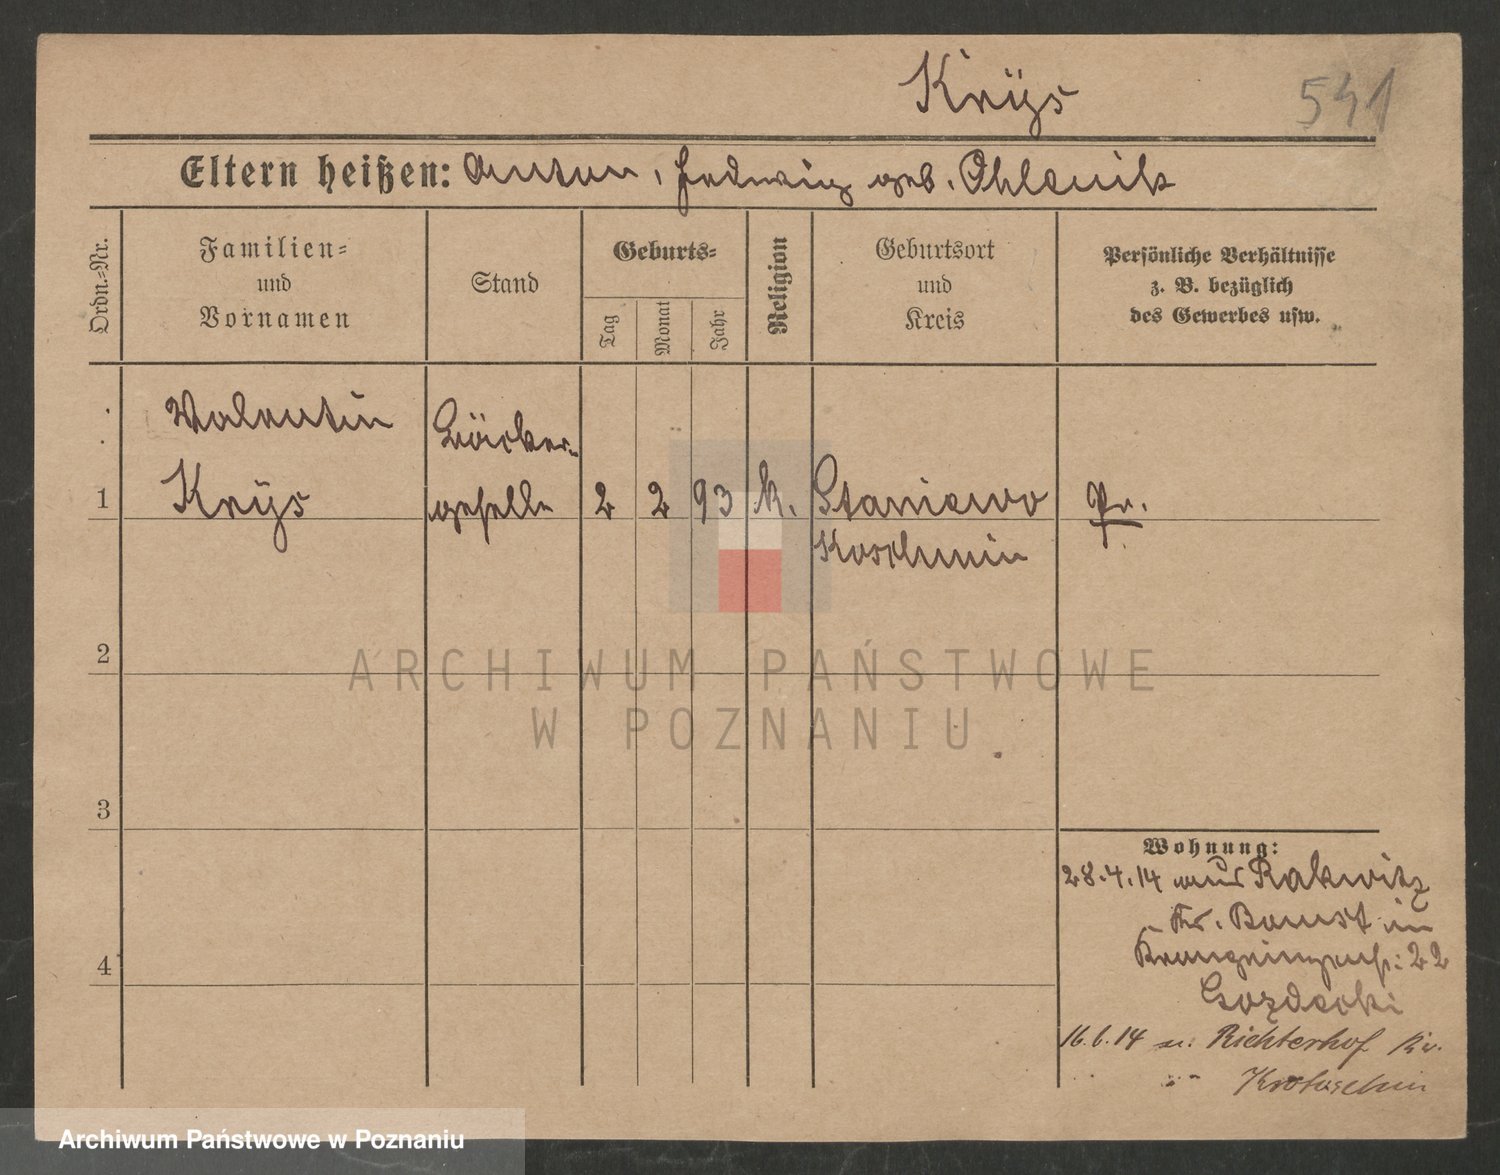 Krys
541
Eltern heißen: Anton, Hedwig geb. Ohlenik
Ordn.-Nr.
Familien-
und
Vornamen
Stand
Geburts-
Tag
Monat
Jahr
Religion
Geburtsort
und
Kreis
Persönliche Verhältnisse
z. B. bezüglich
des Gewerbes usw.
Valentin
Bäcker-
1
Krÿs
geselle
2
2
93
k.
Staniewo
Pr.
Koschmin
2
ARCHIWUM PAŃSTWOWE
W POZNANIU
3
Wohnung:
28.4.14 aus Rakwitz
Kr. Bomst in
4
22
Gozdecki
16.6.14 n. Richterhof Kr.
Krotoschin
Archiwum Państwowe w Poznaniu